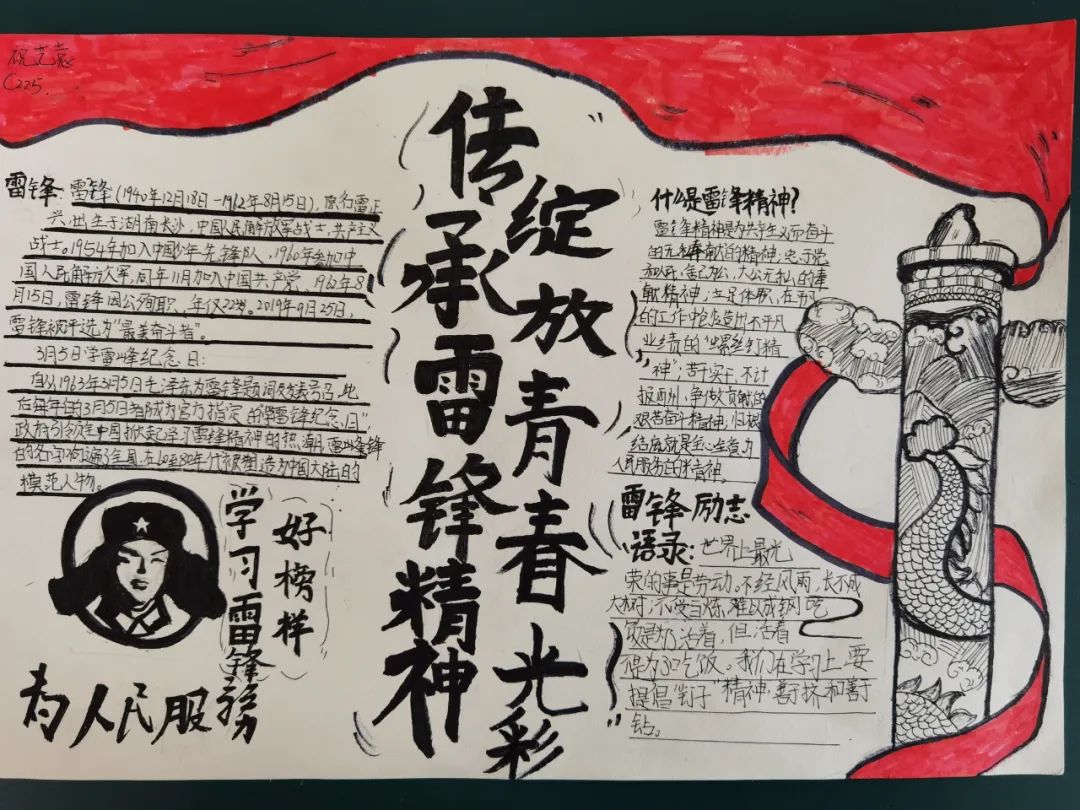 祝艺袁
C225.
传承雷锋精神
绽放青春光彩
雷锋：雷锋(1940年12月18日-1962年8月15日)，原名雷正
兴，出生于湖南长沙，中国人民解放军战士，共产主义
战士。1954年加入中国少年先锋队，1960年参加中
国人民解放军，同年11月加入中国共产党。1962年8
月15日，雷锋因公殉职，年仅22岁。2019年9月25日，
雷锋被评选为“最美奋斗者”。
3月5日学雷锋纪念日：
自从1963年3月5日毛泽东为雷锋题词及发表号召，此
后每年的3月5日都成为官方指定的“学雷锋纪念日”
政府引领全中国掀起学习雷锋精神的热潮，雷锋
的名字响遍了全国，在60至80年代被塑造为中国大陆的
模范人物。
学习雷锋
好榜样
为人民服务
什么是雷锋精神？
雷锋精神是为共产主义而奋斗
的无私奉献的精神；忠于党
和人民、舍己为公、大公无私的奉
献精神；立足本职、在平凡
的工作中创造出不平凡
业绩的“螺丝钉精
神”；苦干实干、不计
报酬、争做贡献的
艰苦奋斗精神，归根
结底就是全心全意为
人民服务的精神。
雷锋励志
语录：世界上最光
荣的事是劳动。不经风雨，长不成
大树；不受百炼，难以成钢。吃
饭是为了活着，但活着
不是为了吃饭。我们在学习上，要
提倡“钉子”精神，善于挤和善于
钻。